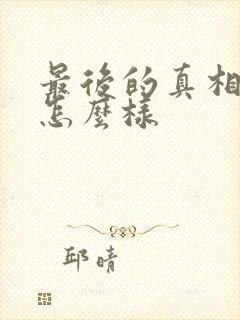 最後的真相
怎麼樣
邱晴